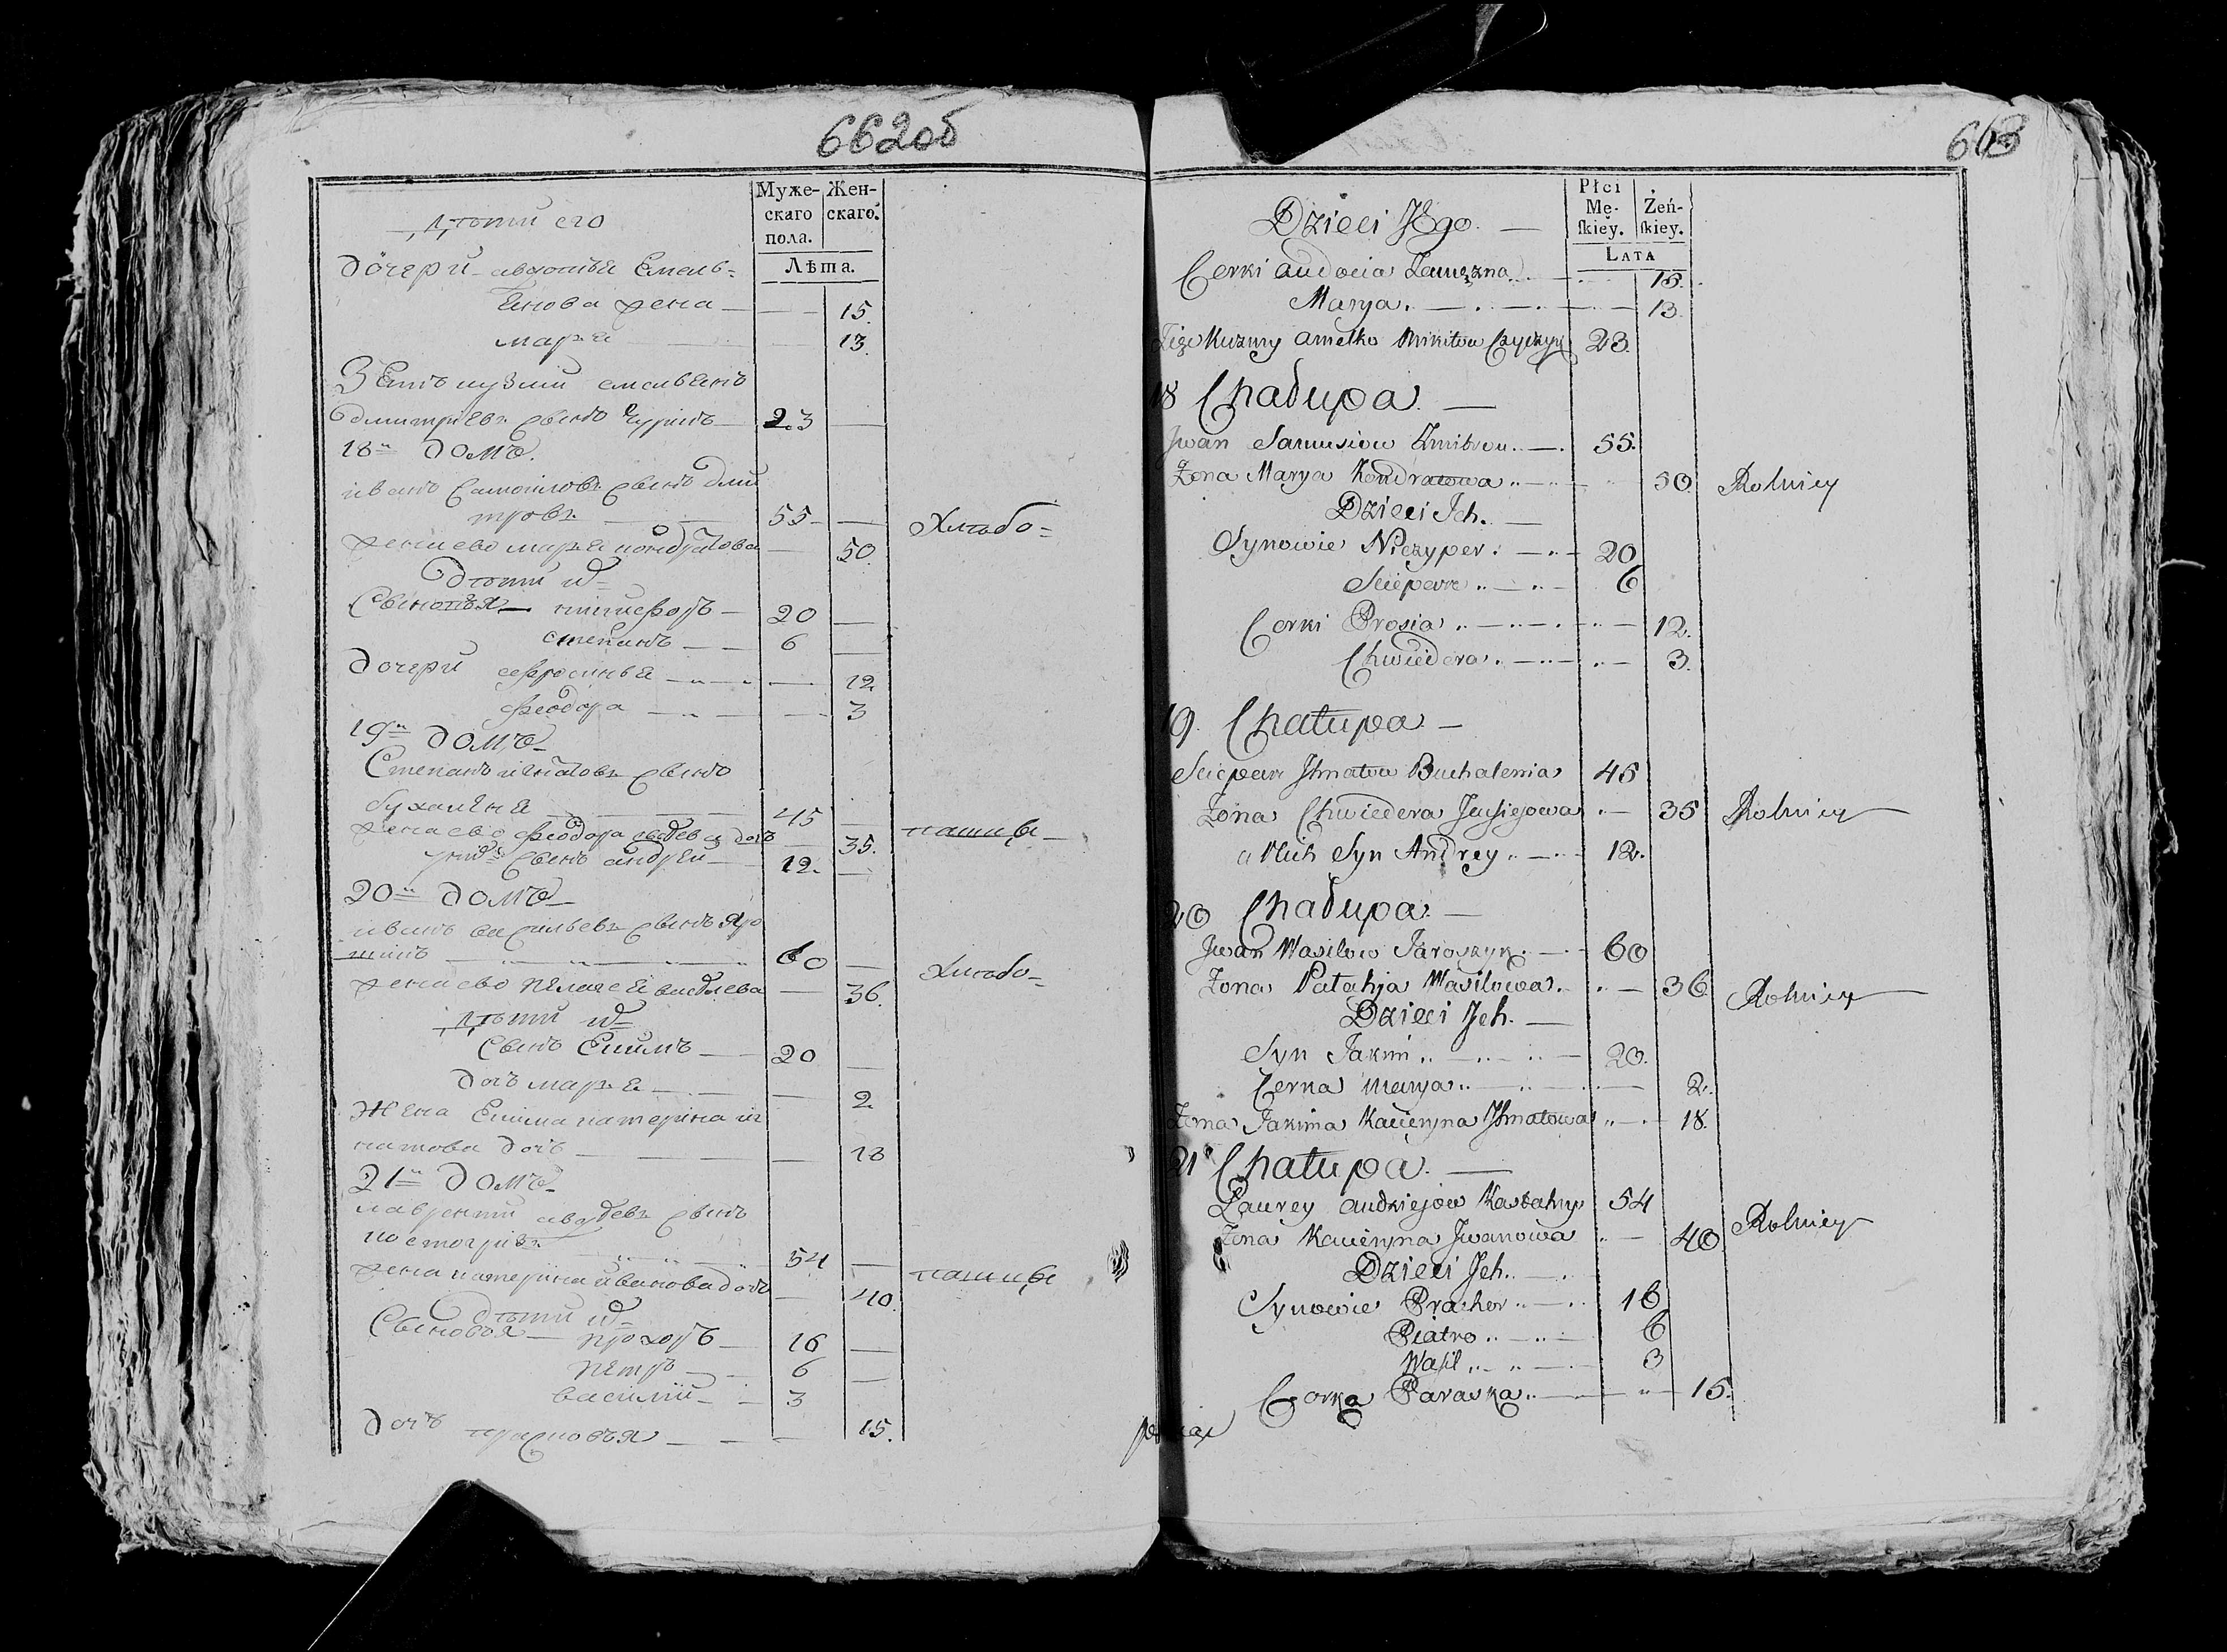 662об
Муже-
скаго
пола.
Жен-
скаго.
Лѣта.
Дѣти его
Дочери авдотья Емель-
янова жена — 15.
марья — 13.
Зять кузмы емельянъ
дмитріевъ сынъ — 23
18й домъ.
иванъ Самоиловъ сынъ дми
тровъ — 55 —
жена ево марья кондратова — 50. Хлѣбо=
Дѣти их
Сыновья — никифоръ — 20 —
степанъ — 6 —
Дочери ефросинья — 12.
феодора — 3
19й домъ
Степанъ игнатовъ сынъ
бухаленя — 45 —
жена ево феодора дочь — 35. пашцы
у них сынъ андрей — 12. —
20й домъ
иванъ васильевъ сынъ яро
шикъ — 60 —
жена ево пелагея — 36. Хлѣбо=
Дѣти их
Сынъ Екимъ — 20 —
Дочь марья — 2
Жена Екима катерина иг
натова дочь — 18
21й домъ
лаврентий сынъ
— 54 —
жена катерина иванова дочь — 40. пашцы
Дѣти их
Сыновья — прохоръ — 16 —
петръ — 6 —
василий — 3
Дочь прасковья — 15.
663
Płci
Mę-
ſkiey.
Żeń-
ſkiey.
LATA
Dzieci Jego. —
Corki Audocia Zamęzna — 15.
Marya. — 13.
Zięć Kuzmy Amelko Mikitow 23.
18 Chałupa. —
Jwan Samusiow Zmitrow. — 55.
Zona Marya Kondratowa — 50. Rolnicy
Dzieci Jch. —
Synowie Niczyper. — 20
Sciepan — 6
Corki Prosia — 12.
Chwiedora — 3.
19. Chałupa —
Sciepan Jhnatow Buchalenia 45
Zona Chwiedera — 35 Rolnicy
a Nich Syn Andrey — 12.
20 Chałupa —
Jwan Wasilow Jaroszyk. — 60
Zona Pałahja Wasilowa. — 36 Rolnicy
Dzieci Jch. —
Syn Jakim — 20.
Corka Marya — 2.
Zona Jakima Kacieryna Jhnatowa — 18.
21 Chałupa. —
Ławrey Audziejow 54
Zona Kacieryna Jwanowa — 40 Rolnicy
Dzieci Jch. —
Synowie Prachor — 16
Piatro — 6
Waſil — 3
Corka Paraska — 15.